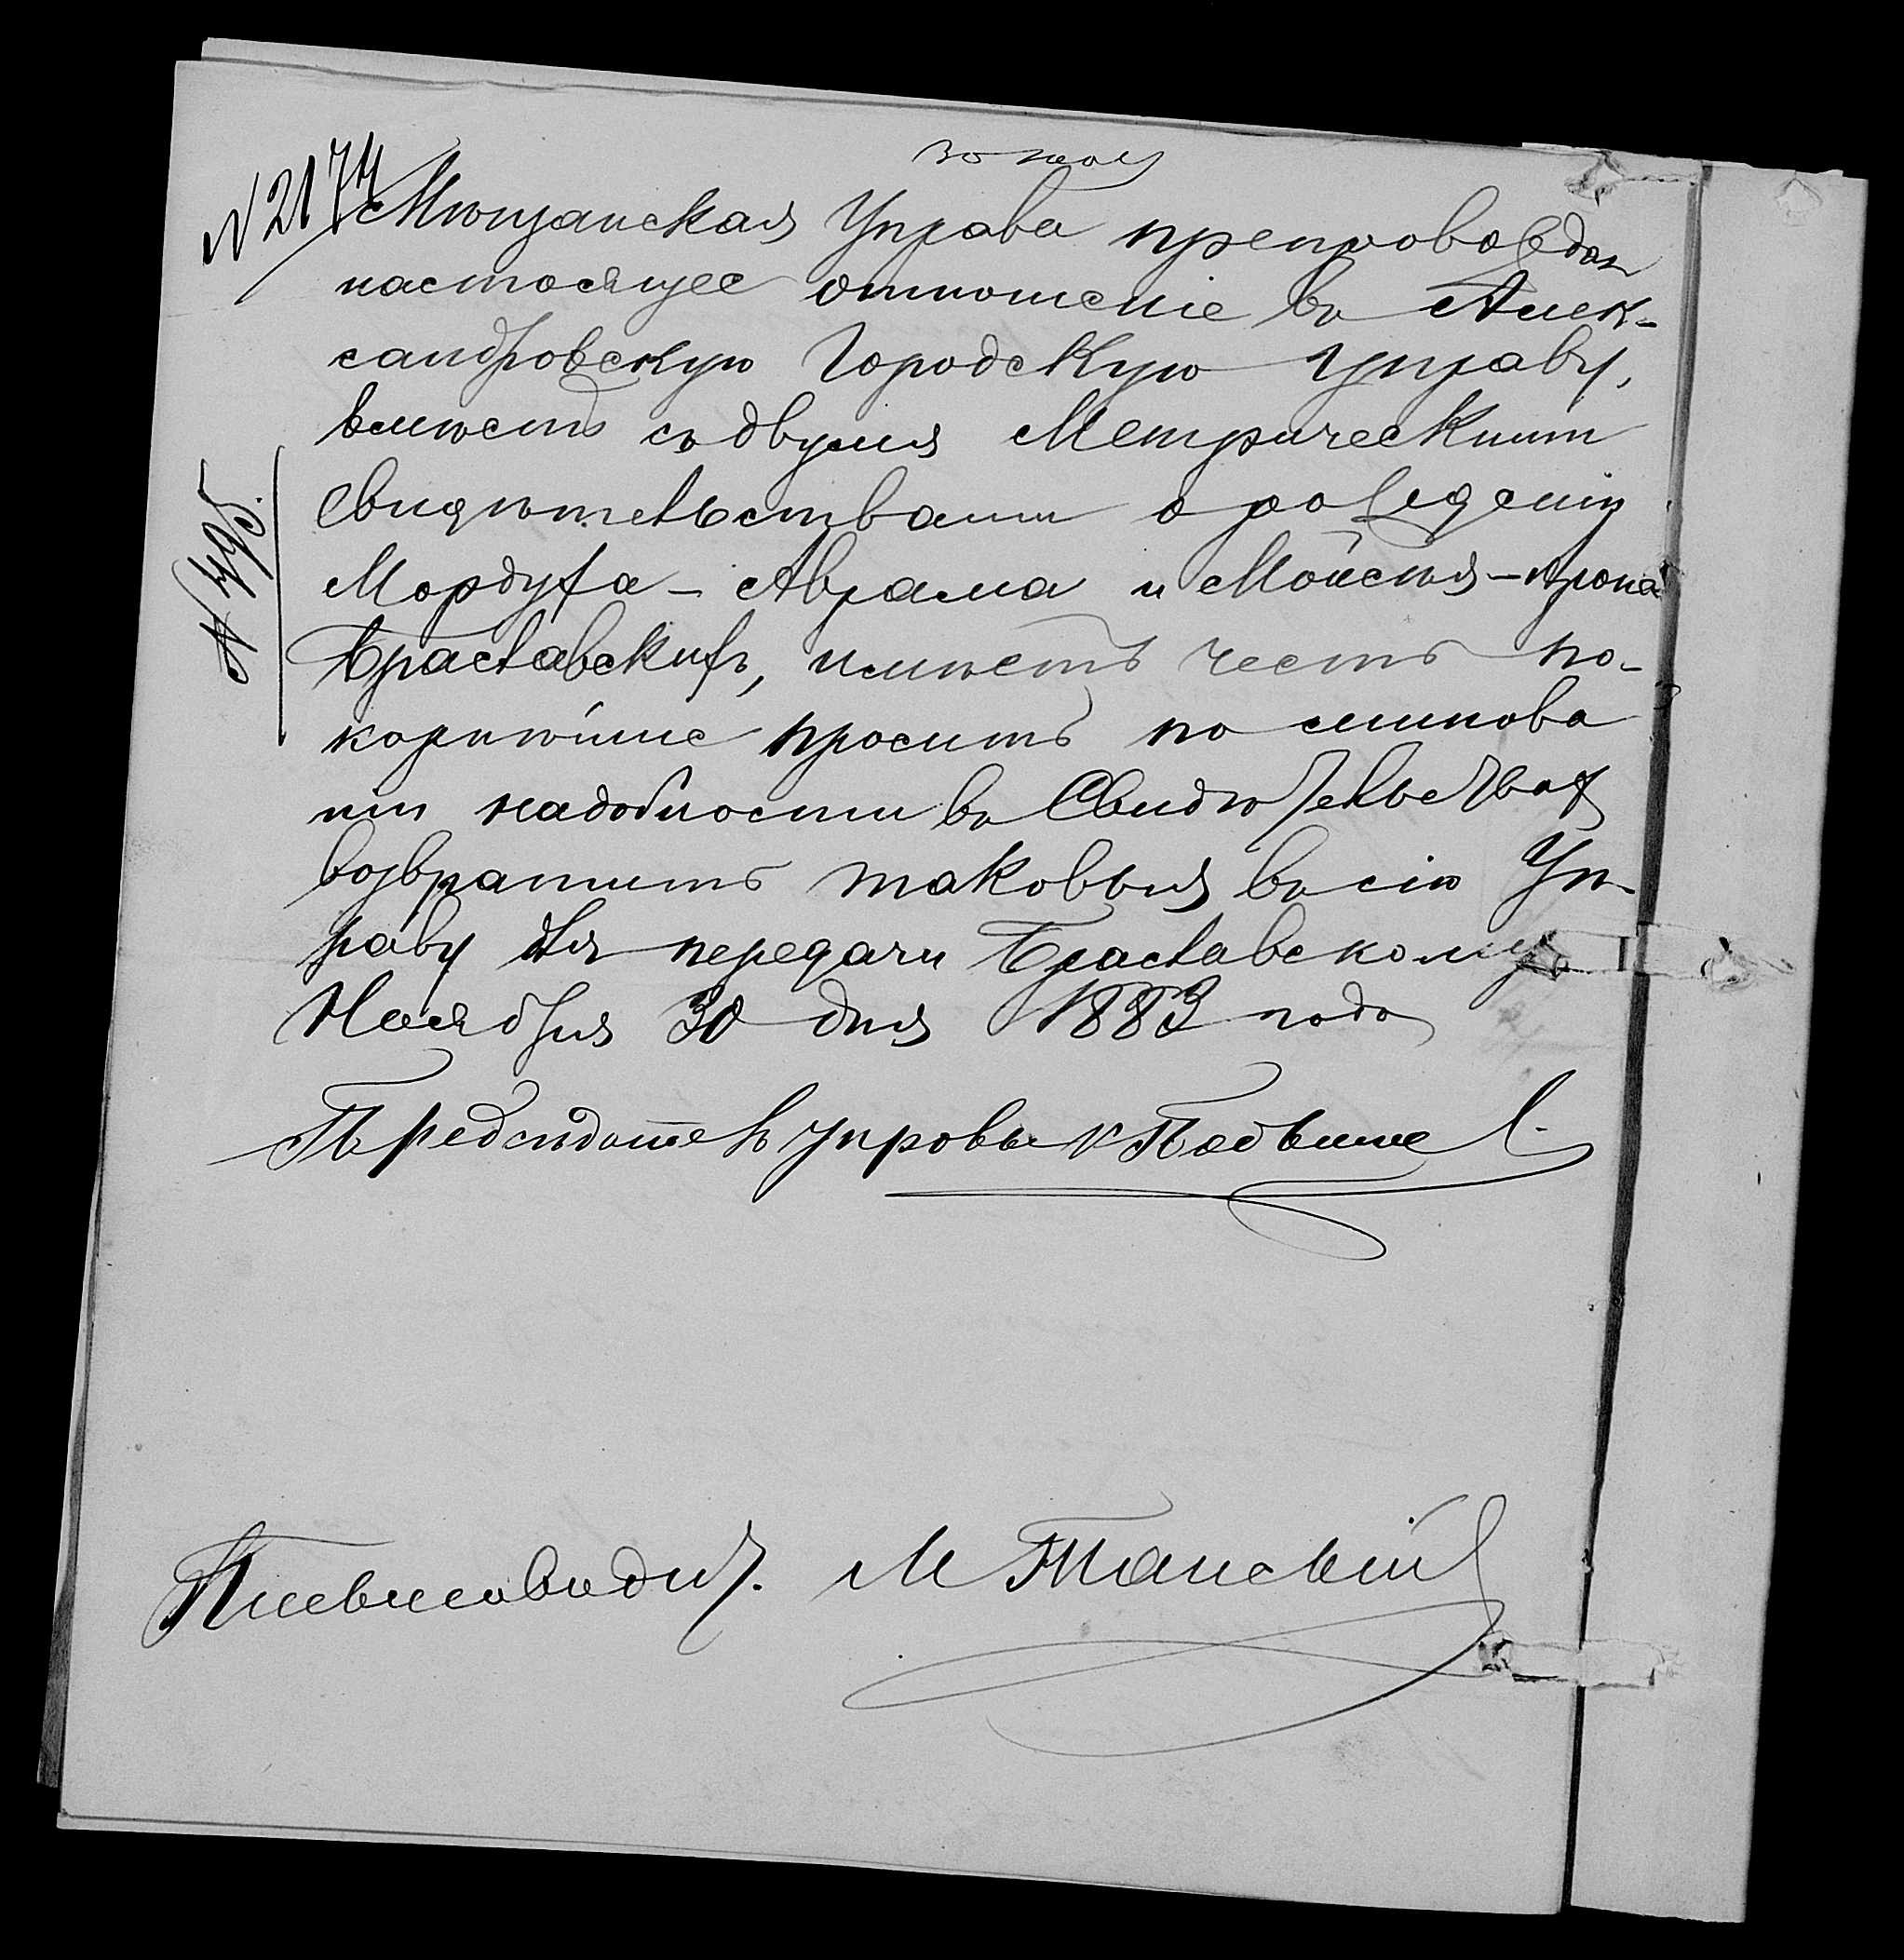 30 ноя
№ 2174
Мѣщанская Управа препровождая
настоящее отношеніе въ Алек-
сандровскую Городскую Управу,
вмѣстѣ съ двумя Метрическими
Свидѣтельствами о рожденіи
Мордуха-Аврама и Мойсея-Арона
№ 495.
Браславскихъ, имѣетъ честь по-
корнѣйше просить по минова
ніи надобности въ Свидѣтельствахъ
возвратить таковыя въ сію Уп-
раву для передачи Браславскому
Ноября 30 дня 1883 года
Предсѣдатель управы
Письмоводит. М Танскій